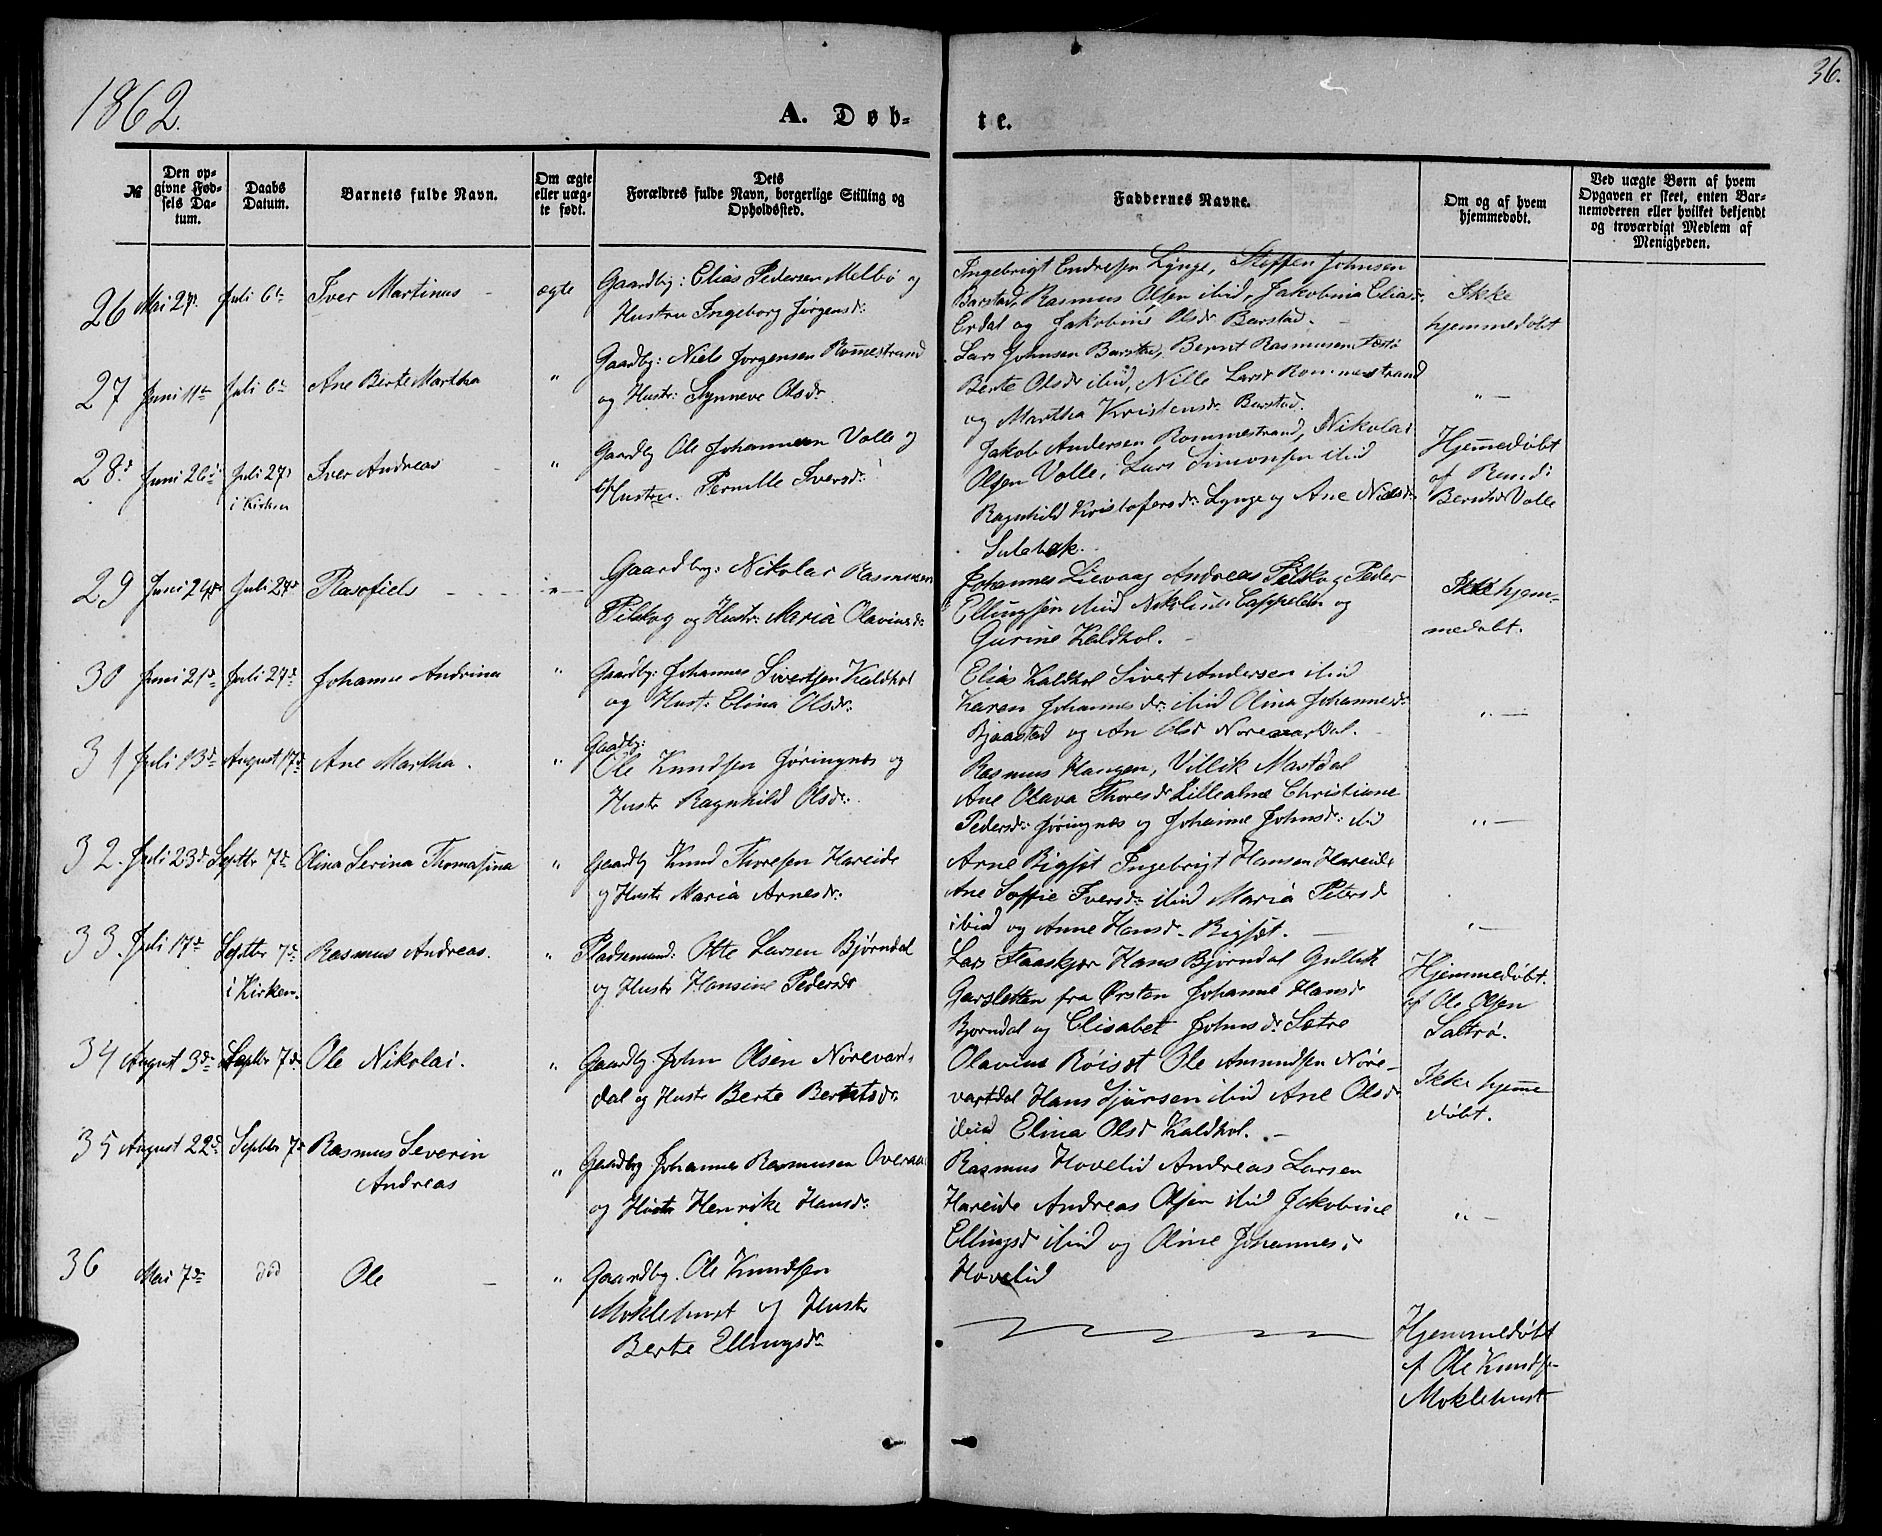 1862.
A. Døb-
te.
36.
№
Den op-
givne Fød-
sels Da-
tum.
Daabs
Datum.
Barnets fulde Navn.
Om ægte
eller uæg-
te født.
Dets
Forældres fulde Navn, borgerlige Stilling og
Opholdssted.
Faddernes Navne.
Om og af hvem
hjemmedøbt.
Ved uægte Børn af hvem
Opgaven er skeet, enten Bar-
nemoderen eller hvilket bekjendt
og troværdigt Medlem af
Menigheden.
26 Mai 27 Juli 6te Iver Martinus ægte
Gaardbr: Elias Pedersen Melbø og
Hustru Ingeborg Jørgensd:
Ingebrigt Endresen Lynge, Steffen Johnsen
Barstad, Rasmus Olsen ibid, Jakobina Elias
Erdal og Jakobine Olsdr Barstad.
Ikke
hjemmedøbt
27 Juni 11te Juli 6te Ane Berte Martha "
Gaardbr: Niels Jørgensen Rommestrand
og Hustr: Synneve Olsdr
Lars Johnsen Barstad, Bernt Rasmusen
Berte Olsdr ibid, Nille Larsd Rommestrand
og Martha Kristensdr Barstad.
" —
28 Juni 26 Juli 27 Iver Andreas "
i Kirken
Gaardbr Ole Johannesen Volle og
Hustru Pernille Iversdr
Jakob Andersen Rommestrand, Nikolai
Olsen Volle, Lars Simonsen ibid
Ragnhild Kristofersdr Lynge og Ane Nielsdr
Sulebak.
Hjemmedøbt
af
Volle
29 Juni 24 Juli 27
Gaardbr: Nikolai Rasmusen
Pilskog og Hustr: Maria Olavinsdr:
Johannes Lievaag Andreas Pilskog Peder
Ellingsen ibid Nikoline Cappelen og
Gurine Kaldhol. —
Ikke hjem-
medøbt.
30 Juni 21 Juli 27 Johanne Andrina "
Gaardbr: Johannes Sivertsen Kaldhol
og Hustr: Elina Olsdr:
Elias Kaldhol Sivert Andersen ibid
Karen Johannesdr: ibid Olina Johannesdr
Bjaastad og An Olsd
" —
31 Juli 13d August 17d Ane Martha. "
Gaardbr:
Ole Knudsen Jøringnæs og
Hustr Ragnhild Olsdr:
Rasmus Haugen, Villik Mastdal
Ane Olava Thoresdr Lillealme Christiane
Pedersdr: Jøringnæs og Johanne Johnsdr: ibid
" —
32. Juli 23d Septbr 7d Olina Serina Thomasina "
Gaardbr Knud Thoresen Hareide
og Hustr Maria Arnesdr:
Arne Bigset Ingebrigt Hansen Hareide
Ane Soffie Iversdr: ibid Maria Petersd
ibid og Anne Hansdr. Bigset. —
" —
33. Juli 17d Septbr 7d Rasmus Andreas. "
i Kirken.
Pladsmand: Otte Larsen Bjørndal
og Hustr Hansine Pedersdr
Lars Flaaskjær Hans Bjørndal Gullik
fra Ørsten Johanne Hansd
Bjørndal og Elisabet Johnsdr Sætre
Hjemmedøbt.
af Ole Olsen
Saltrø.
34 August 3d Septbr 7d Ole Nikolai. "
Gaardbr. John Olsen Nørevart-
dal og Hustr Berte Berntsdr.
Olavius Røiset Ole Amundsen Nøre-
vartdal Hans ibid Ane Olsdr
ibid Elina Olsd Kaldhol. —
Ikke hjemme
døbt.
35 August 22d Septbr 7d Rasmus Severin "
Andreas
Gaardbr Johannes Rasmusen Overaa
og Hustr Henrike Hansdr:
Rasmus Hovelid Andreas Larsen
Hareide Andreas Olsen ibid Jakobine
Ellingsd ibid og Oline Johannesd
Hovelid
" —
36 Mai 7de død Ole — "
Gaardbr. Ole Knudsen
Moklehust og Hustr
Berte Ellingsdr
Hjemmedøbt
af Ole Knuds-
Moklehust